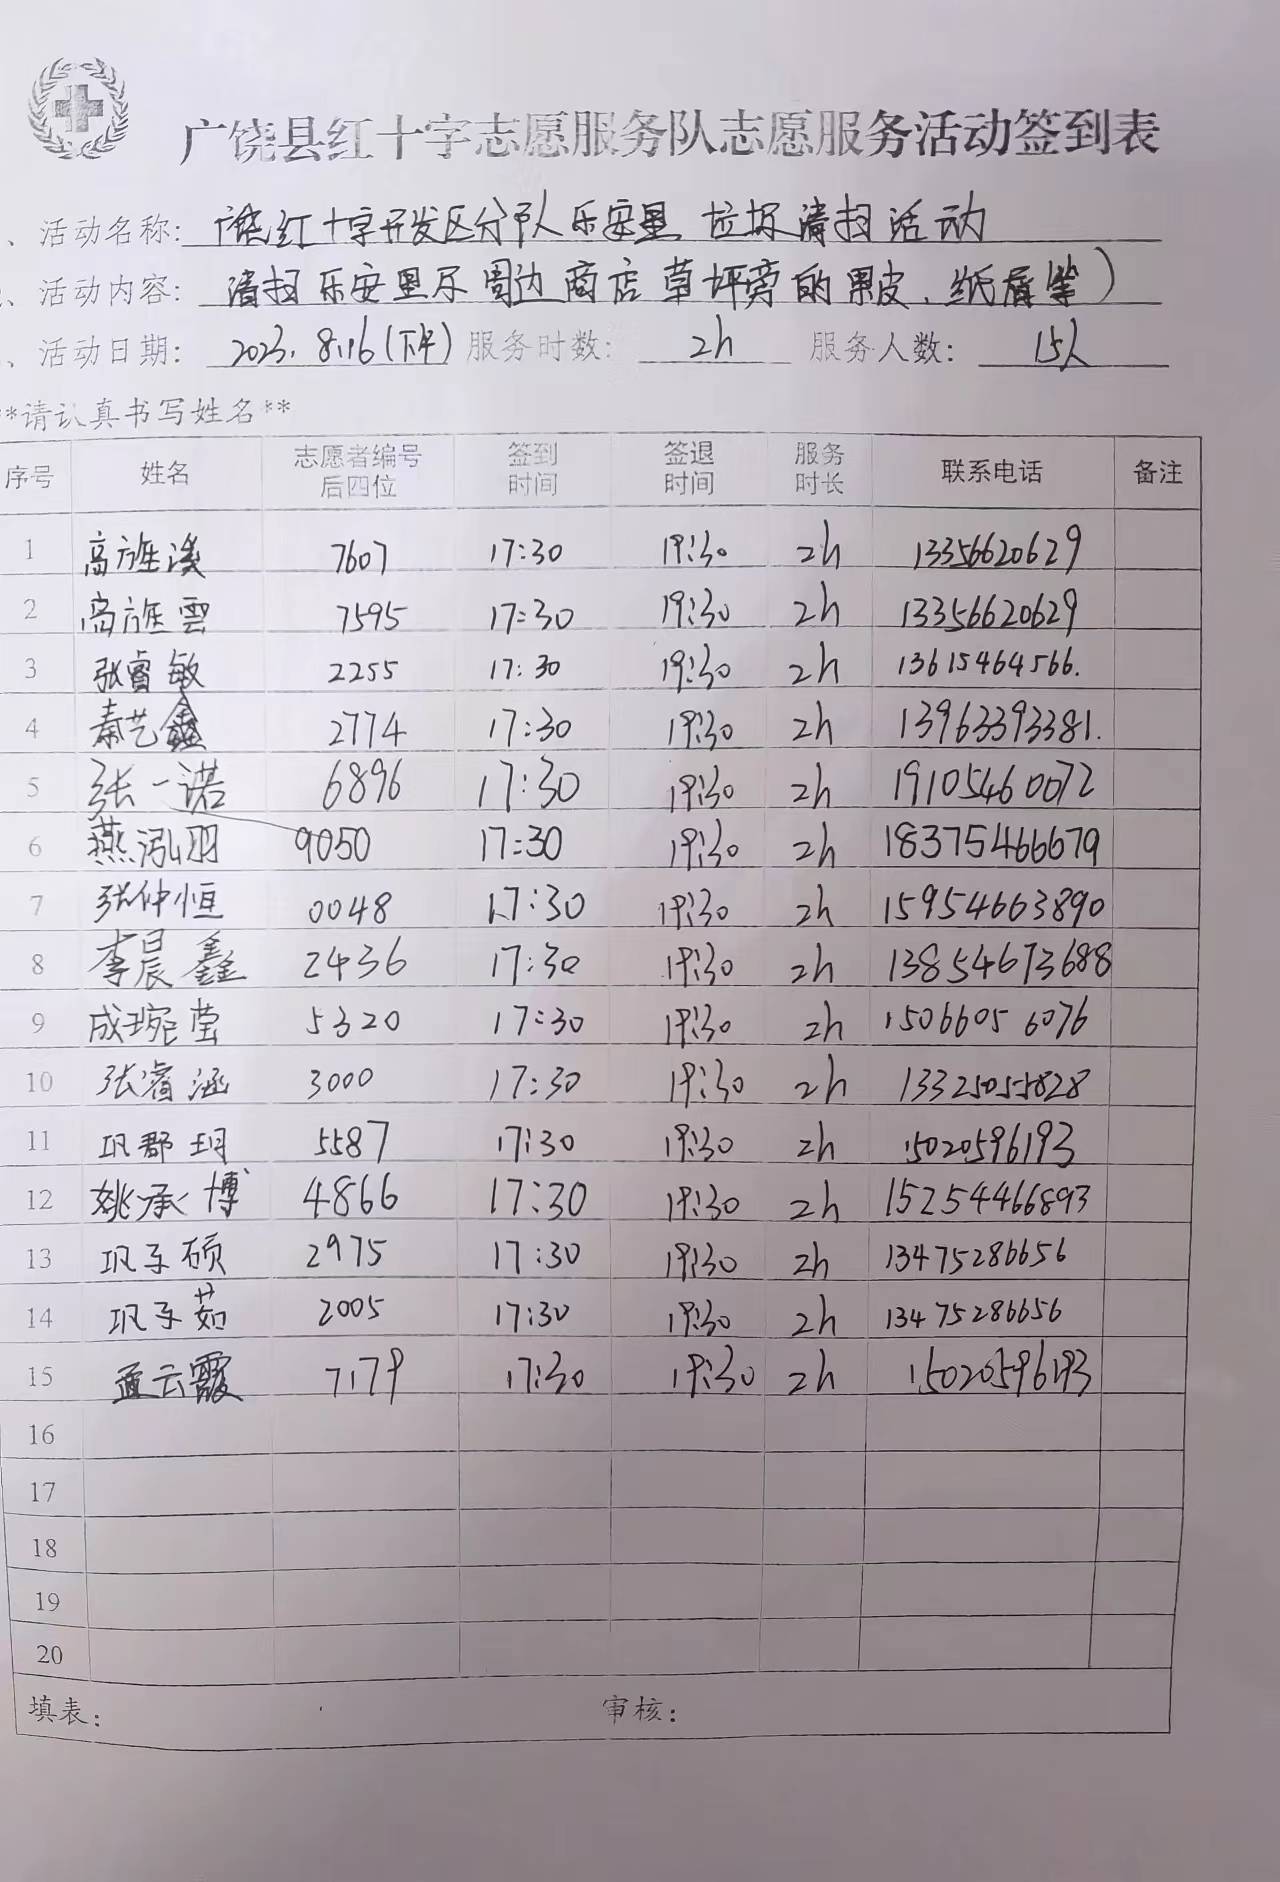 广饶县红十字志愿服务队志愿服务活动签到表
、活动名称: 广饶红十字开发区分队乐安里垃圾清扫活动
、活动内容: 清扫乐安里尽周边商店草坪旁的果皮、纸屑等)
、活动日期: 2023.8.16(下午) 服务时数: 2h 服务人数: 15人
**请认真书写姓名**
序号 姓名 志愿者编号后四位 签到时间 签退时间 服务时长 联系电话 备注
1 高旌淏 7607 17:30 19:30 2h 13356620629
2 高旌雲 7595 17:30 19:30 2h 13356620629
3 张睿敏 2255 17:30 19:30 2h 13615464566.
4 秦艺鑫 2774 17:30 19:30 2h 13963393381.
5 张一诺 6896 17:30 19:30 2h 19105460072
6 燕泓羽 9050 17:30 19:30 2h 18375466679
7 张仲恒 0048 17:30 19:30 2h 15954663890
8 李晨鑫 2436 17:30 19:30 2h 13854673688
9 成琬莹 5320 17:30 19:30 2h 15066056076
10 张睿涵 3000 17:30 19:30 2h 13325055828
11 巩郡玥 5587 17:30 19:30 2h 15020596193
12 姚承博 4866 17:30 19:30 2h 15254466893
13 巩子硕 2975 17:30 19:30 2h 13475286656
14 巩子茹 2005 17:30 19:30 2h 13475286656
15 云霞 7179 17:30 19:30 2h 15020596193
16
17
18
19
20
填表: 审核: